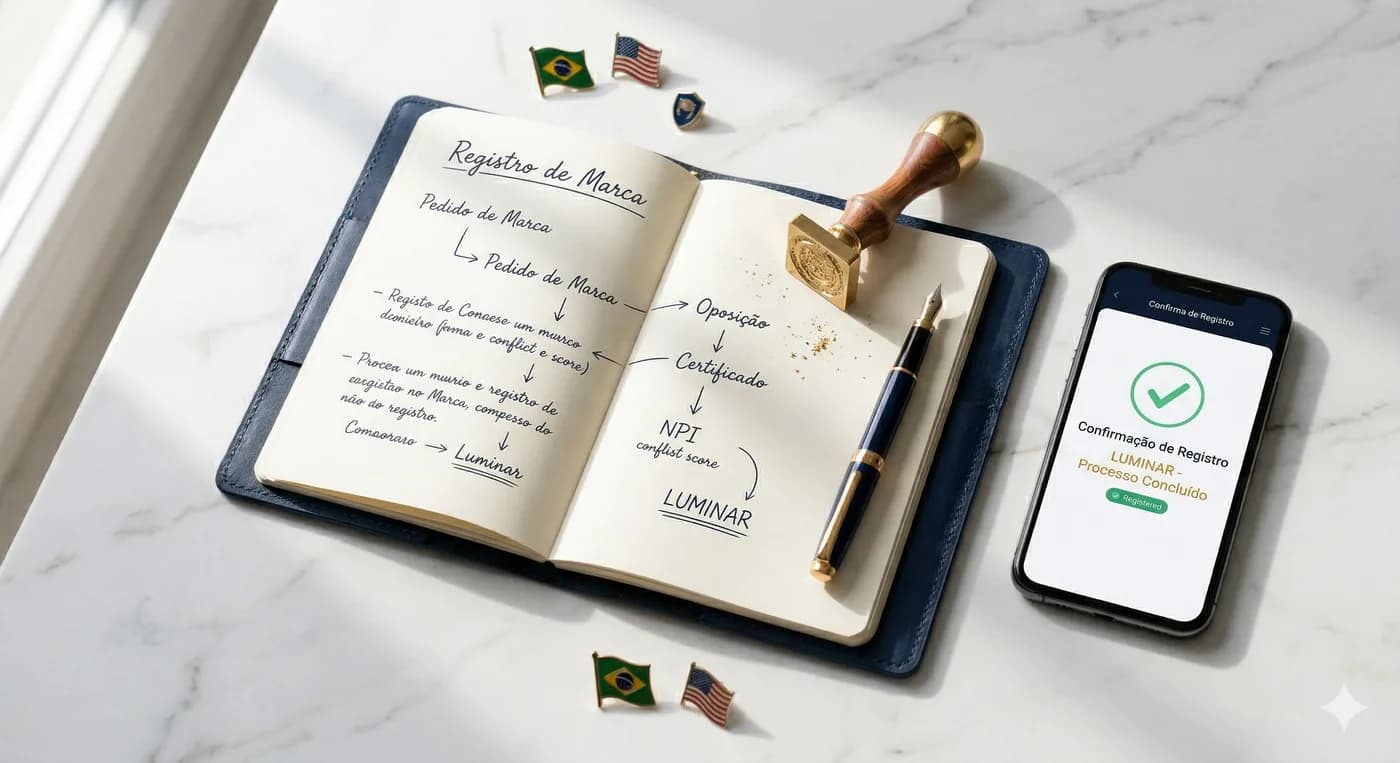 Registro de Marca
Pedido de Marca
Pedido de Marca
– Registo de Conaese um murco
dconielro (forma e conflict e score)
– Procex um muurio e registro de
cargistão no Marca, compesso do
não do registro.
Comaoraro
Luminar
Oposição
Certificado
NPI
conflist score
LUMINAR
Confirma de Registro
Confirmação de Registro
LUMINAR –
Processo Concluído
Registered